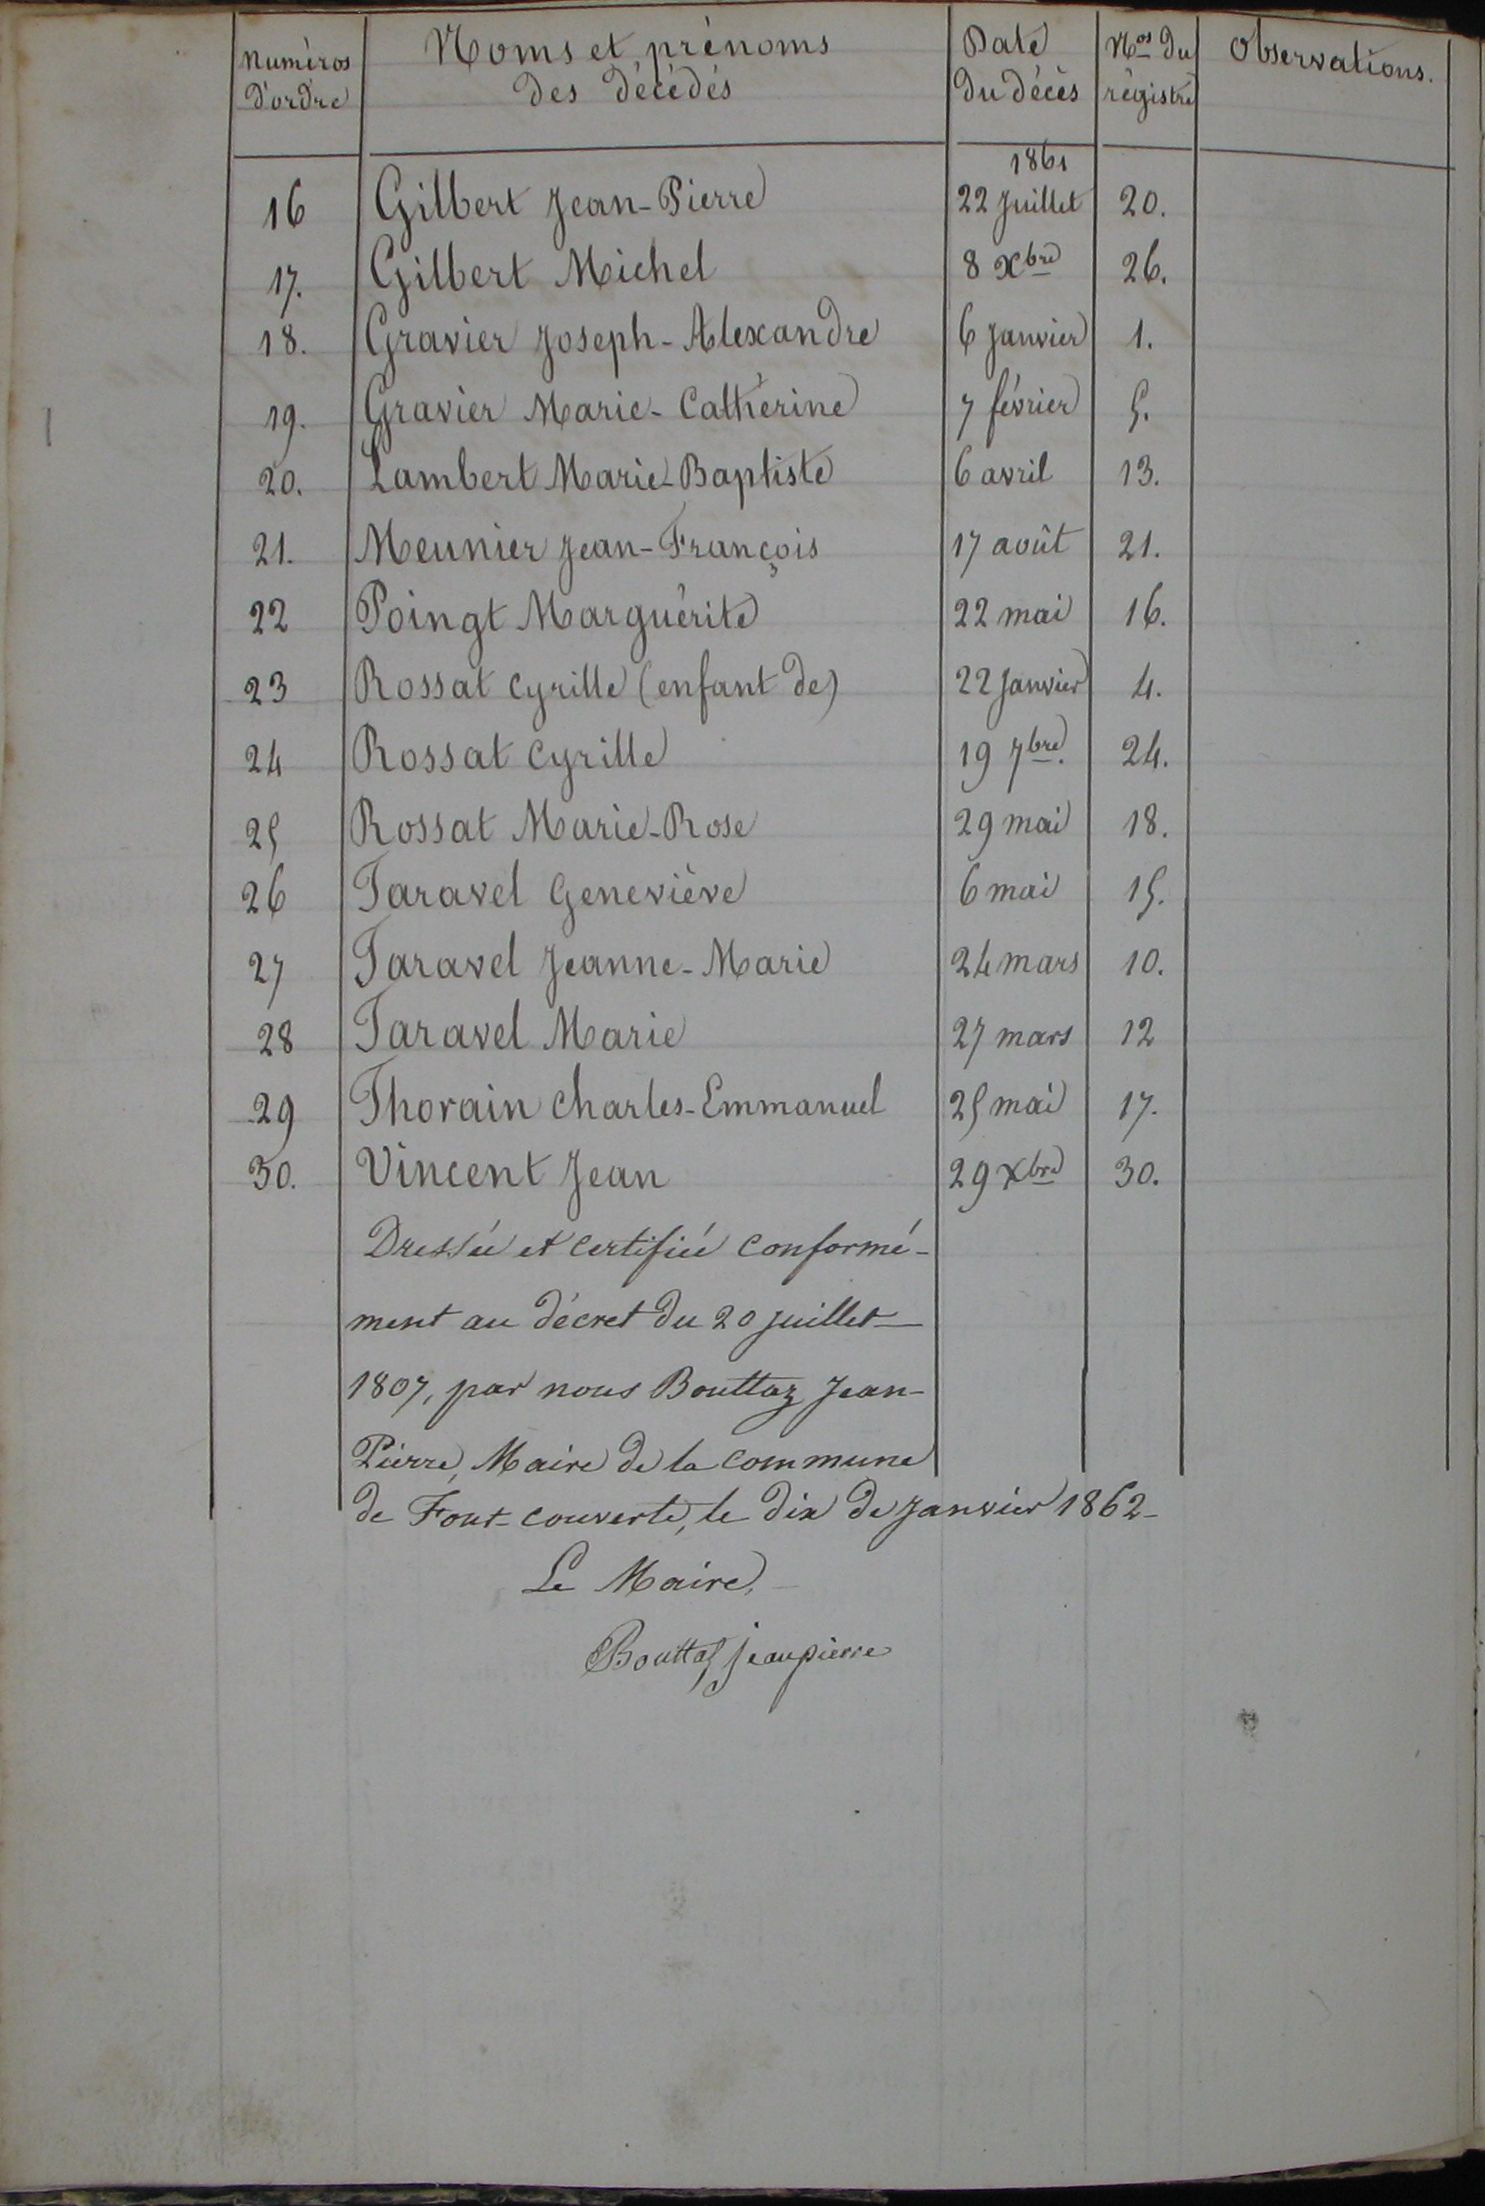 Numéros d'ordre | Noms et prénoms des décédés | Date du décès | Nos du régistre | Observations.
1861
16 Gilbert Jean-Pierre 22 Juillet 20.
17. Gilbert Michel 8 Xbre 26.
18. Gravier Joseph-Alexandre 6 Janvier 1.
19. Gravier Marie-Cathérine 7 février 5.
20. Lambert Marie-Baptiste 6 avril 13.
21. Meunier Jean-François 17 août 21.
22 Poingt Marguérite 22 mai 16.
23 Rossat Cyrille (enfant de) 22 Janvier 4.
24 Rossat Cyrille 19 7bre. 24.
25 Rossat Marie-Rose 29 mai 18.
26 Taravel Geneviève 6 mai 15.
27 Taravel Jeanne-Marie 24 mars 10.
28 Taravel Marie 27 mars 12
29 Thorain Charles-Emmanuel 25 mai 17.
30. Vincent Jean 29 Xbre 30.
Dressée et certifiée conformé-
ment au décret du 20 juillet
1807, par nous Bouttaz Jean-
Pierre, Maire de la commune
de Font-couverte, le dix de Janvier 1862-
Le Maire,
Bouttaz jeanpierre